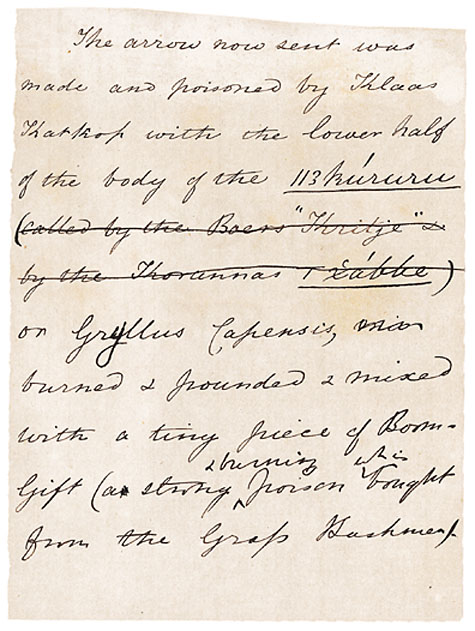 The arrow now sent was
made and poisoned by Klaas
Katkop with the lower half
of the body of the 113 kúruru
(called by the Boers "Kritje" &
by the Korannas
or Gryllus Capensis,
burned & pounded & mixed
with a tiny piece of Boom-
& burning which is
Gift (a strong poison bought
from the Grass Bushmen).